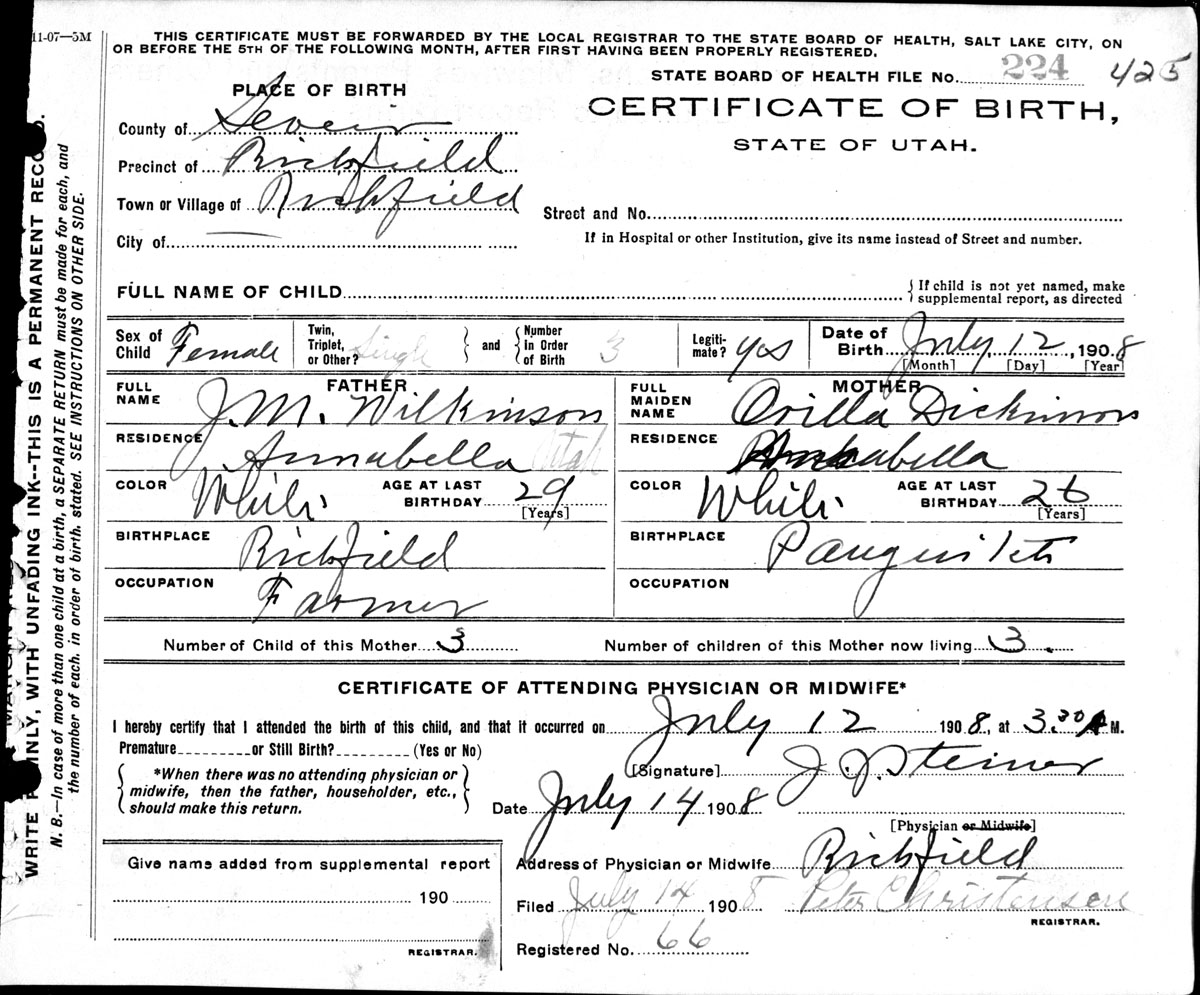 11-07—5M
THIS CERTIFICATE MUST BE FORWARDED BY THE LOCAL REGISTRAR TO THE STATE BOARD OF HEALTH, SALT LAKE CITY, ON
OR BEFORE THE 5TH OF THE FOLLOWING MONTH, AFTER FIRST HAVING BEEN PROPERLY REGISTERED.
STATE BOARD OF HEALTH FILE No. 224 425
PLACE OF BIRTH
CERTIFICATE OF BIRTH,
STATE OF UTAH.
County of Sevier
Precinct of Richfield
Town or Village of Richfield
Street and No.
City of
If in Hospital or other Institution, give its name instead of Street and number.
FULL NAME OF CHILD
{ If child is not yet named, make
supplemental report, as directed
Sex of Child Female
Twin, Triplet, or Other? Single } and { Number in Order of Birth 3
Legiti-mate? Yes
Date of Birth July 12, 1908
[Month] [Day] [Year]
FATHER
FULL NAME J. M. Wilkinson
RESIDENCE Annabella Utah
COLOR White AGE AT LAST BIRTHDAY 29
[Years]
BIRTHPLACE Richfield
OCCUPATION Farmer
MOTHER
FULL MAIDEN NAME Orilla Dickinson
RESIDENCE Annabella
COLOR White AGE AT LAST BIRTHDAY 26
[Years]
BIRTHPLACE Panguitch
OCCUPATION
Number of Child of this Mother 3
Number of children of this Mother now living 3.
CERTIFICATE OF ATTENDING PHYSICIAN OR MIDWIFE*
I hereby certify that I attended the birth of this child, and that it occurred on July 12 1908, at 3:30 A M.
Premature or Still Birth? (Yes or No)
{ *When there was no attending physician or
midwife, then the father, householder, etc.,
should make this return. }
[Signature] J. J. Steiner
Date July 14 1908
[Physician or Midwife]
Address of Physician or Midwife Richfield
Filed July 14 1908 Peter Christensen
REGISTRAR.
Registered No. 66
Give name added from supplemental report
190
REGISTRAR.
WRITE PLAINLY, WITH UNFADING INK--THIS IS A PERMANENT RECORD.
N. B.—In case of more than one child at a birth, a SEPARATE RETURN must be made for each, and
the number of each, in order of birth, stated. SEE INSTRUCTIONS ON OTHER SIDE.